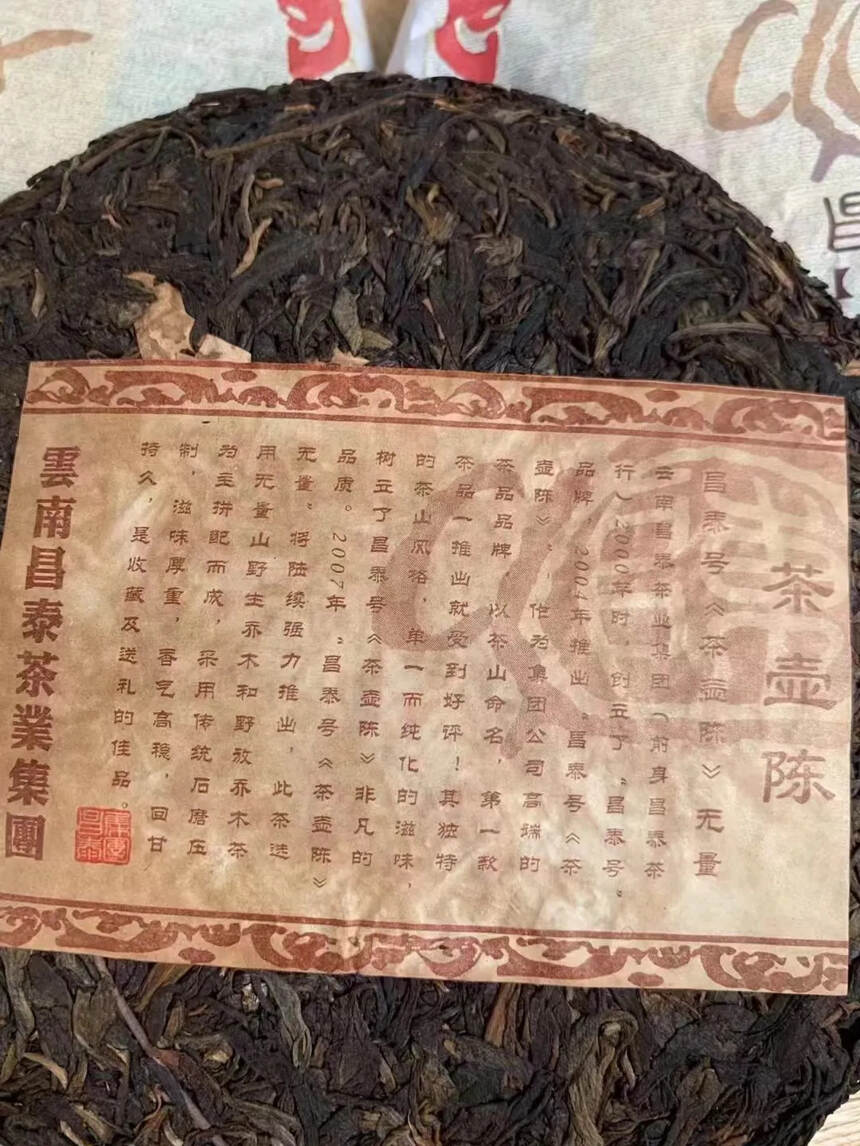 茶壶陈
昌泰号《茶壶陈》无量
云南昌泰茶业集团（前身昌泰茶
行）2000年时，创立了“昌泰号”
品牌，2004年推出“昌泰号《茶
壶陈》”，作为集团公司高端的
茶品品牌，以茶山命名，第一款
茶品一推出就受到好评！其独特
的茶山风格，单一而纯化的滋味，
树立了昌泰号《茶壶陈》非凡的
品质。2007年“昌泰号《茶壶陈》
无量”将陆续强力推出，此茶选
用无量山野生乔木和野放乔木茶
为主拼配而成，采用传统石磨压
制，滋味厚重，香气高稳，回甘
持久，是收藏及送礼的佳品。
雲南昌泰茶業集團
昌